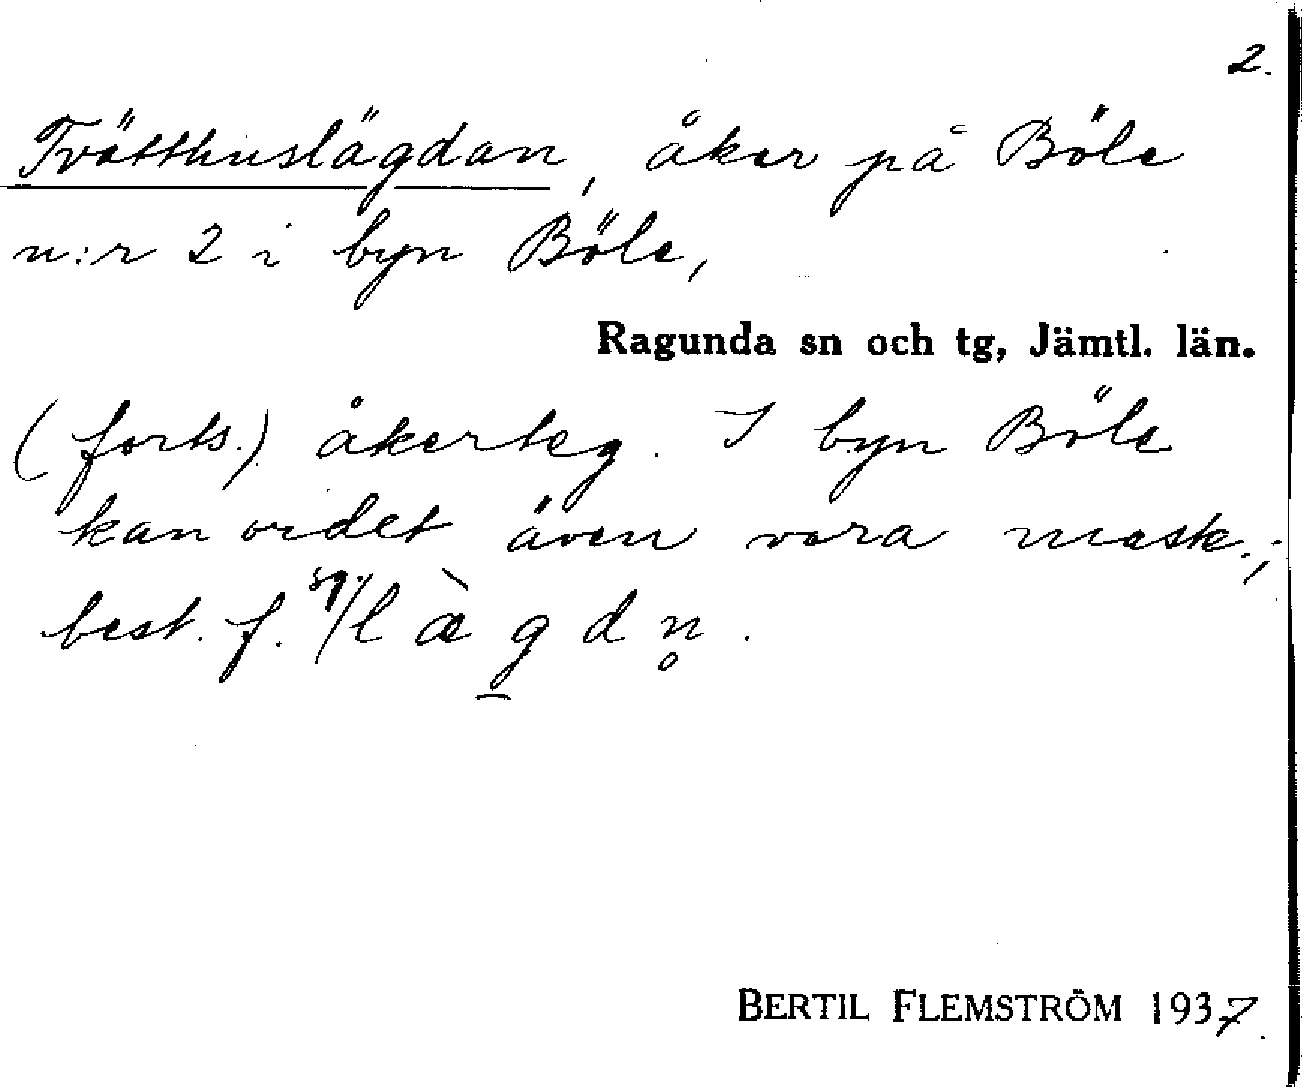 2.
Tvätthuslägdan, åker på Böle
n:r 2 i byn Böle,
Ragunda sn och tg, Jämtl. län.
(forts.) åkerteg. I byn Böle
kan ordet även vara mask.;
best. f. sg. læ̀gdn̥.
BERTIL FLEMSTRÖM 1937